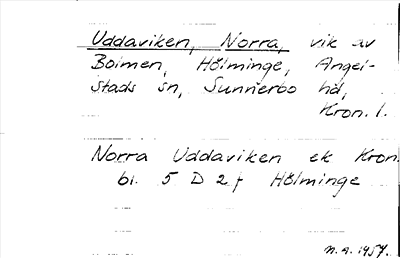 Uddaviken, Norra, vik av
Bolmen, Hölminge, Angel-
stads sn, Sunnerbo hd,
Kron. l.
Norra Uddaviken ek Kron.
bl. 5 D 2 f Hölminge
N.A. 1957.